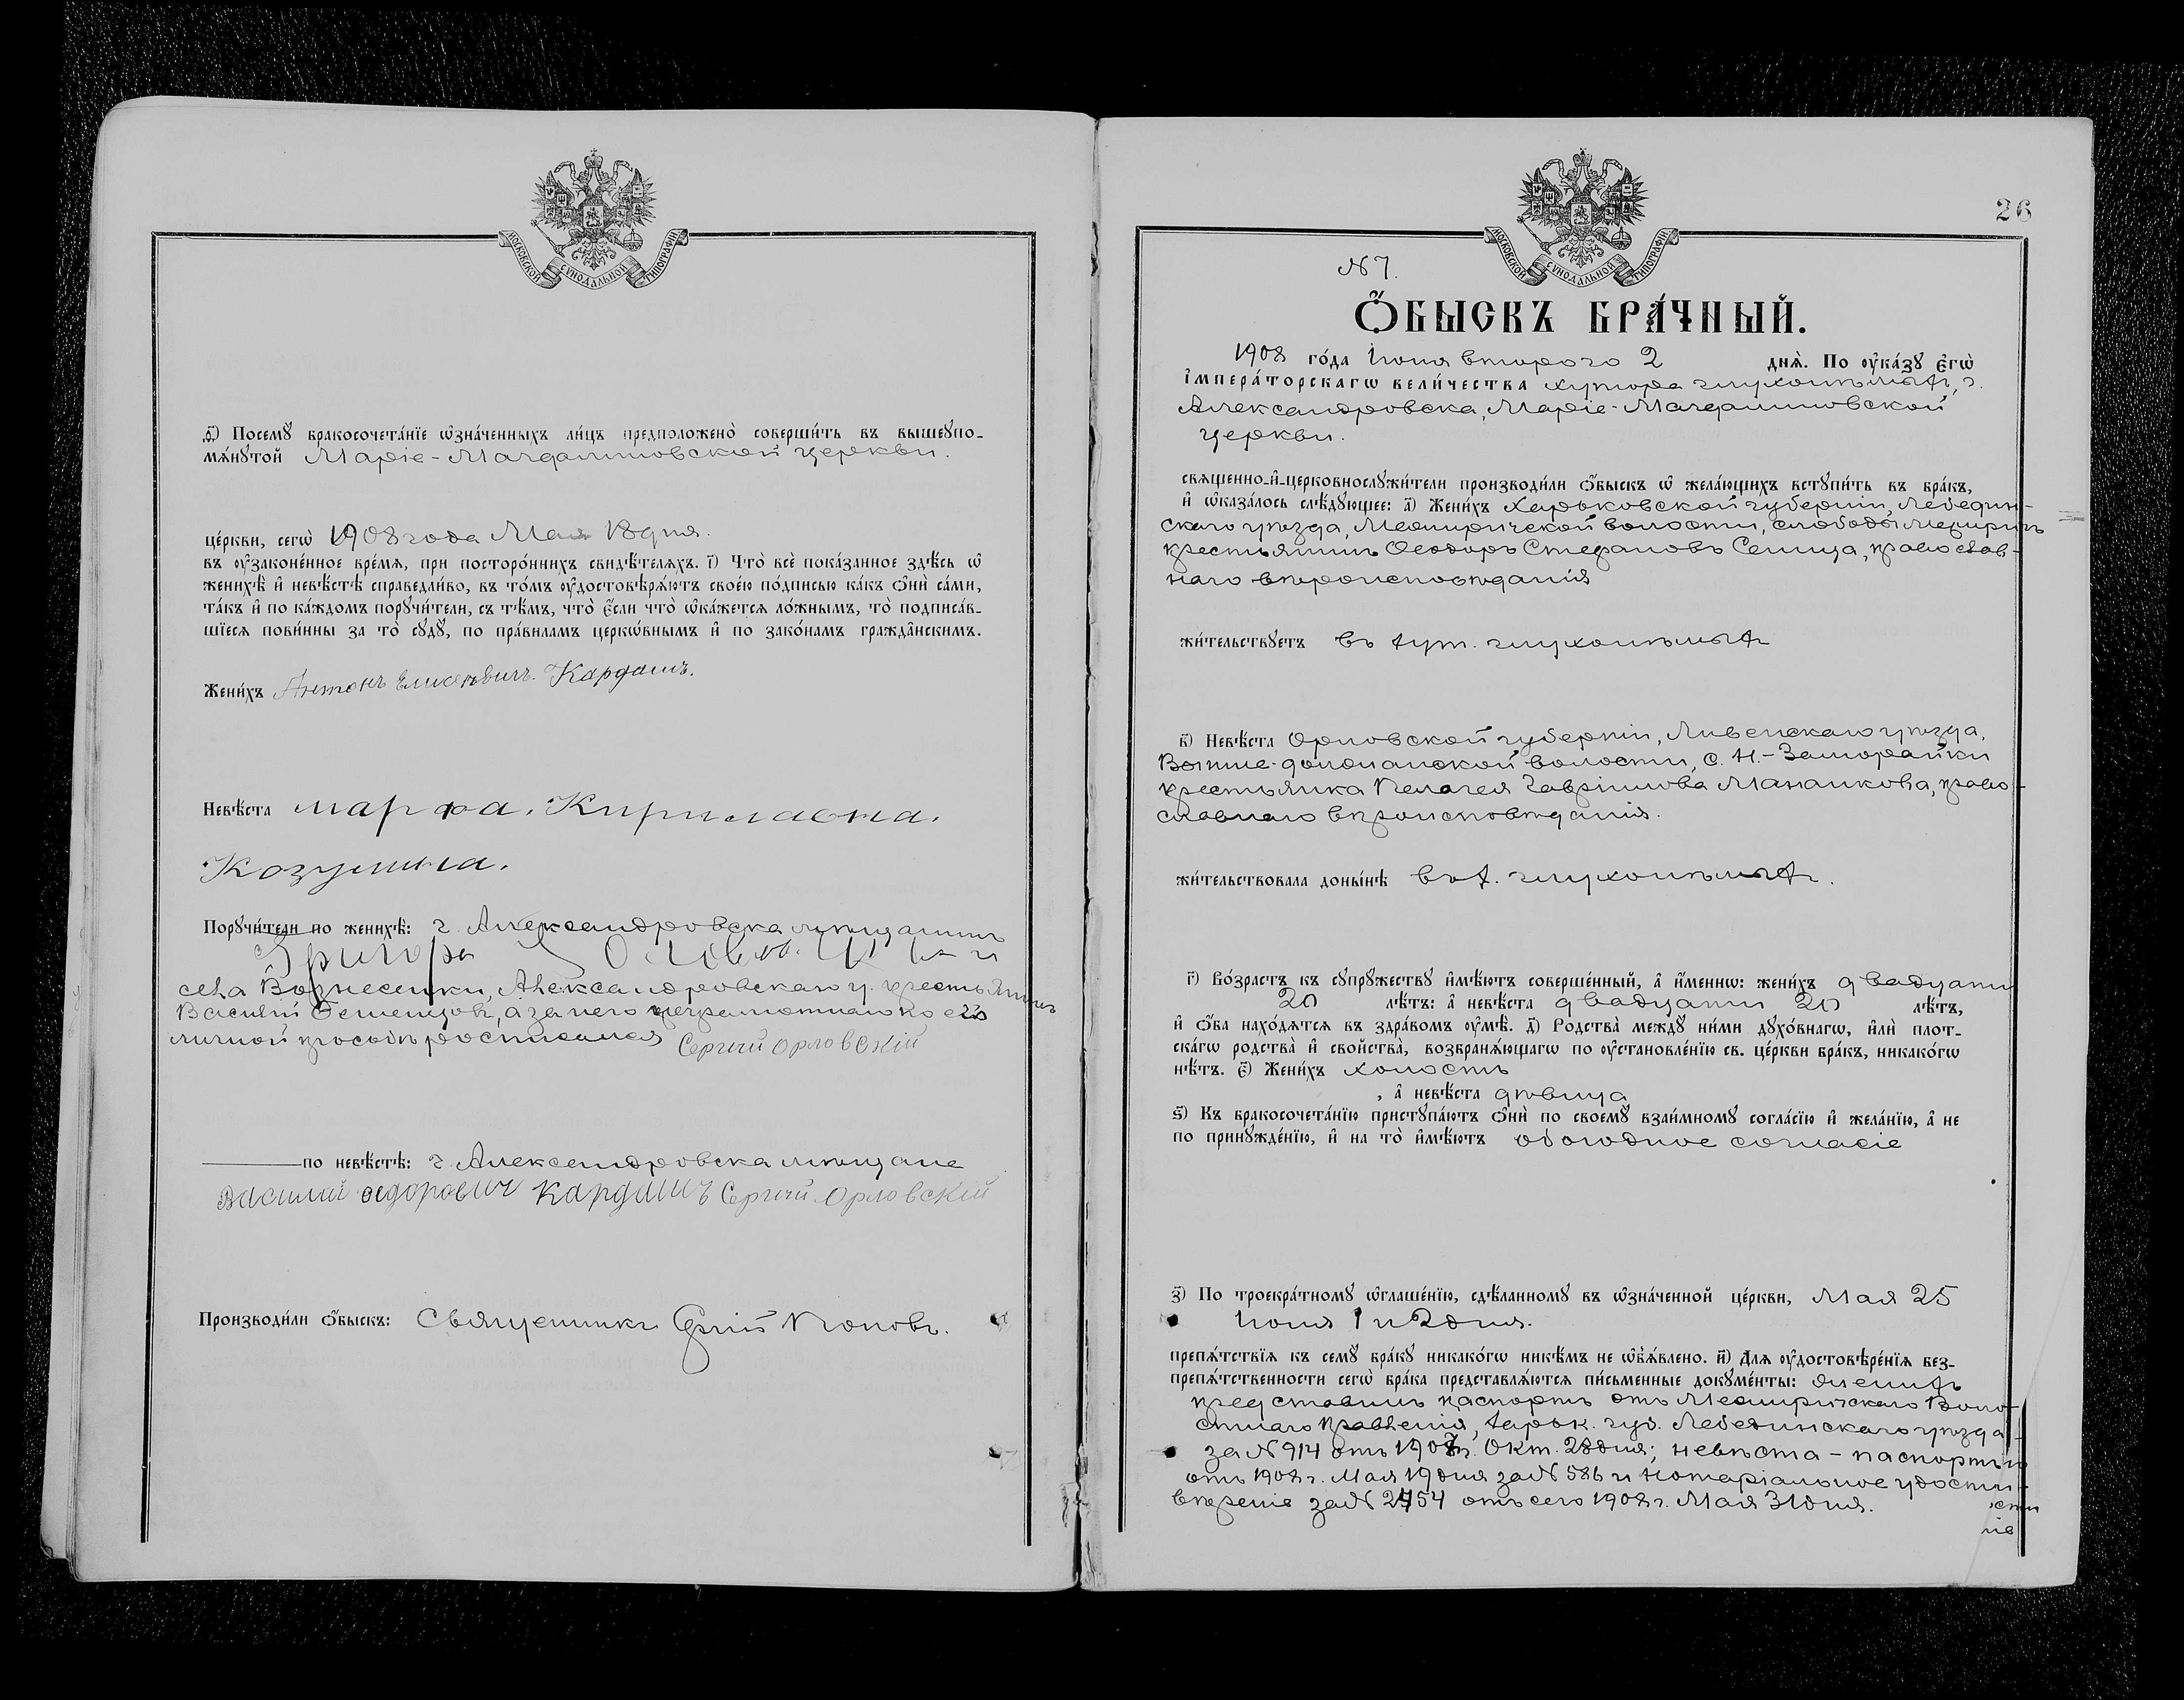 МОСКОВСКОЙ СѴНОДАЛЬНОЙ ТИПОГРАФІИ
ѳ҃) Посемꙋ̀ бракосочета́нїе ѡ҆зна́ченныхъ ли́цъ предположено̀ соверши́ть въ вышеꙋпо-
мѧ́нꙋтой Маріе-Магдалиновской церкви.
це́ркви, сегѡ̀ 1908 года Мая 18 дня.
въ ᲂу҆зако́ненное вре́мѧ, при посторо́ннихъ свидѣ́телѧхъ. і҃) Что̀ всѐ пока́занное здѣ́сь ѡ҆
женихѣ̀ и҆ невѣ́стѣ справедли́во, въ то́мъ ᲂу҆достовѣрѧ́ютъ свое́ю по́дписью ка́къ ѻ҆нѝ са́ми,
та́къ и҆ по ка́ждомъ порꙋчи́тели, съ тѣ́мъ, что̀ є҆́сли что̀ ѡ҆ка́жетсѧ ло́жнымъ, то̀ подписа́в-
шїесѧ пови́нны за то̀ сꙋдꙋ̀, по пра́виламъ церкѡ́внымъ и҆ по зако́намъ гражда̂нскимъ.
Жени́хъ Антонъ Елисеевичъ. Кардашъ.
Невѣ́ста марфа. Кириловна.
Козулина.
Порꙋчи́тели по женихѣ̀: г. Александровска мѣщанинъ
села Вознесенки, Александровскаго у. крестьянинъ
Василій Семенцовъ, а за него неграмотнаго по его
личной просьбѣ росписался Сергій Орловскій
по невѣ́стѣ: г. Александровска мѣщане
Василий Федорович Кардашъ Сергий Орловскій
Производи́ли ѻ҆́быскъ: Священникъ Поповъ.
26
МОСКОВСКОЙ СѴНОДАЛЬНОЙ ТИПОГРАФІИ
№ 7.
Ѻ҆́БЫСКЪ БРА́ЧНЫЙ.
1908 го́да Іюня второго 2 днѧ̀. По ᲂу҆ка́зꙋ Є҆гѡ̀
І҆мпера́торскагѡ вели́чества хутора , г.
Александровска, Маріе-Магдалиновской
церкви.
свѧщенно-и҆-церковнослꙋжи́тели производи́ли ѻ҆́быскъ ѡ҆ жела́ющихъ встꙋпи́ть въ бра́къ,
и҆ ѡ҆каза́лось слѣ́дꙋющее: а҃) Жени́хъ Харьковской губерніи, Лебедин-
скаго уѣзда, Межиричской волости, слободы Межиричъ
крестьянинъ Ѳеодоръ Стефановъ Сеница, православ-
наго вѣроисповѣданія
жи́тельствꙋетъ въ хут.
в҃) Невѣ́ста Орловской губерніи, Ливенскаго уѣзда,
волости, с. Н.-Заморайки
крестьянка Пелагея Гавріилова Манаикова, право-
славнаго вѣроисповѣданія.
жи́тельствовала доны́нѣ въ х.
г҃) Во́зрастъ къ сꙋпрꙋ́жествꙋ и҆мѣ́ютъ соверше́нный, а҆ и҆́меннѡ: жени́хъ двадцати
20 лѣ́тъ: а҆ невѣ́ста двадцати 20 лѣ́тъ,
и҆ ѻ҆́ба нахо́дѧтсѧ въ здра́вомъ ᲂу҆мѣ̀. д҃) Родства̀ междꙋ̀ ни́ми дꙋхо́внагѡ, и҆лѝ плот-
ска́гѡ родства̀ и҆ свойства̀, возбранѧ́ющагѡ по ᲂу҆становле́нїю св. це́ркви бра́къ, никако́гѡ
нѣ́тъ. є҃) Жени́хъ холостъ
, а҆ невѣ́ста дѣвица
ѕ҃) Къ бракосочета́нїю пристꙋпа́ютъ ѻ҆нѝ по своемꙋ̀ взаи́мномꙋ согла́сїю и҆ жела́нїю, а҆ не
по принꙋжде́нїю, и҆ на то̀ и҆мѣ́ютъ обоюдное согласіе
з҃) По троекра́тномꙋ ѡ҆глаше́нїю, сдѣ́ланномꙋ въ ѡ҆зна́ченной це́ркви, Мая 25
Іюня 1 и 2 дня.
препѧ́тствїѧ къ семꙋ̀ бра́кꙋ никако́гѡ никѣ́мъ не ѡ҆б̾ѧ́влено. и҃) Длѧ ᲂу҆достовѣре́нїѧ без-
препѧ́тственности сегѡ̀ бра́ка представлѧ́ютсѧ пи́сьменные докꙋме́нты: женихъ
представилъ паспортъ отъ Межиричскаго Воло-
стнаго Правленія, Харьк. губ. Лебединскаго уѣзда
за № 914 отъ 1907 г. Окт. 28 дня; невѣста - паспортъ
отъ 1908 г. Мая 19 дня за № 586 и нотаріальное удосто-
вѣреніе за № 2454 отъ сего 1908 г. Мая 31 дня.